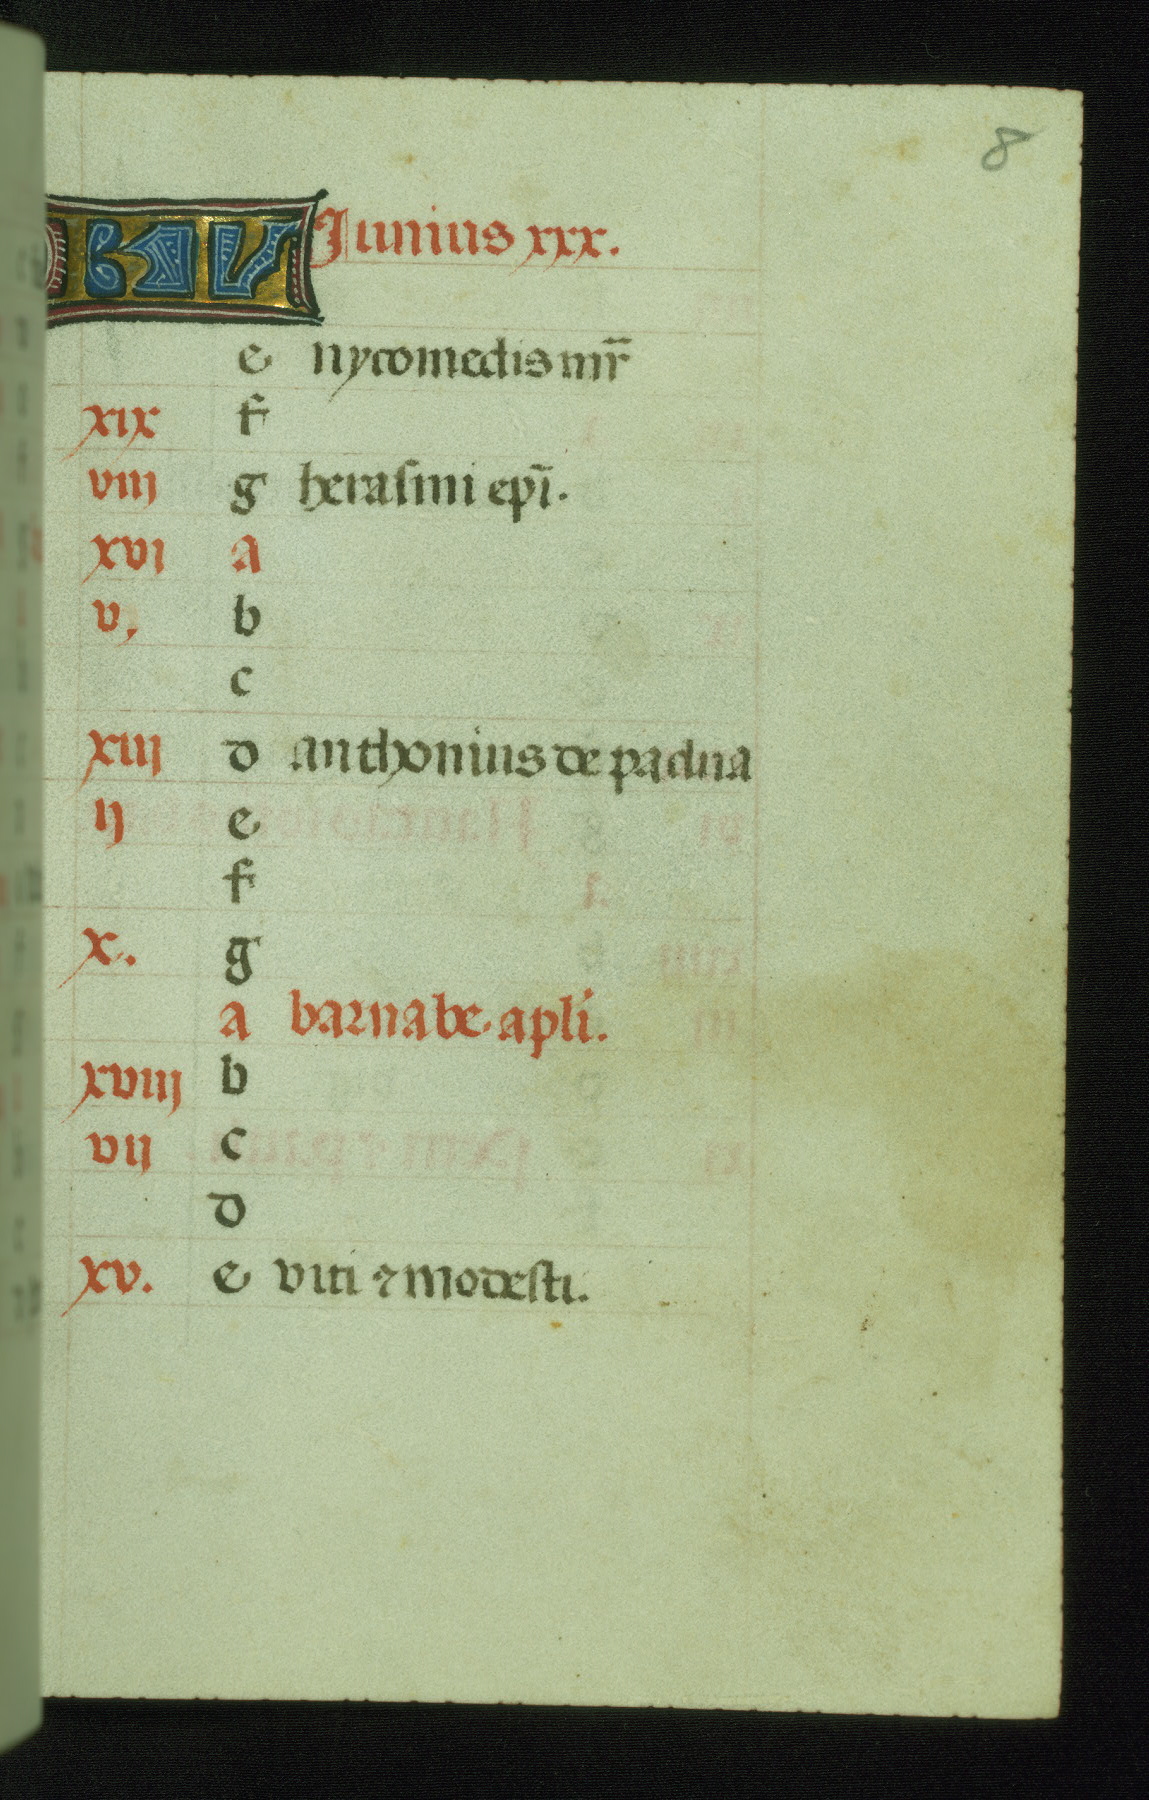 8
KL Junius xxx.
e nycomedis mr̄
xix f
viii g herasmi epī.
xvi a
v, b
c
xiii d anthonius de padua
ij e
f
x. g
a barnabe apli.
xviii b
vij c
d
xv. e viti ⁊ modesti.